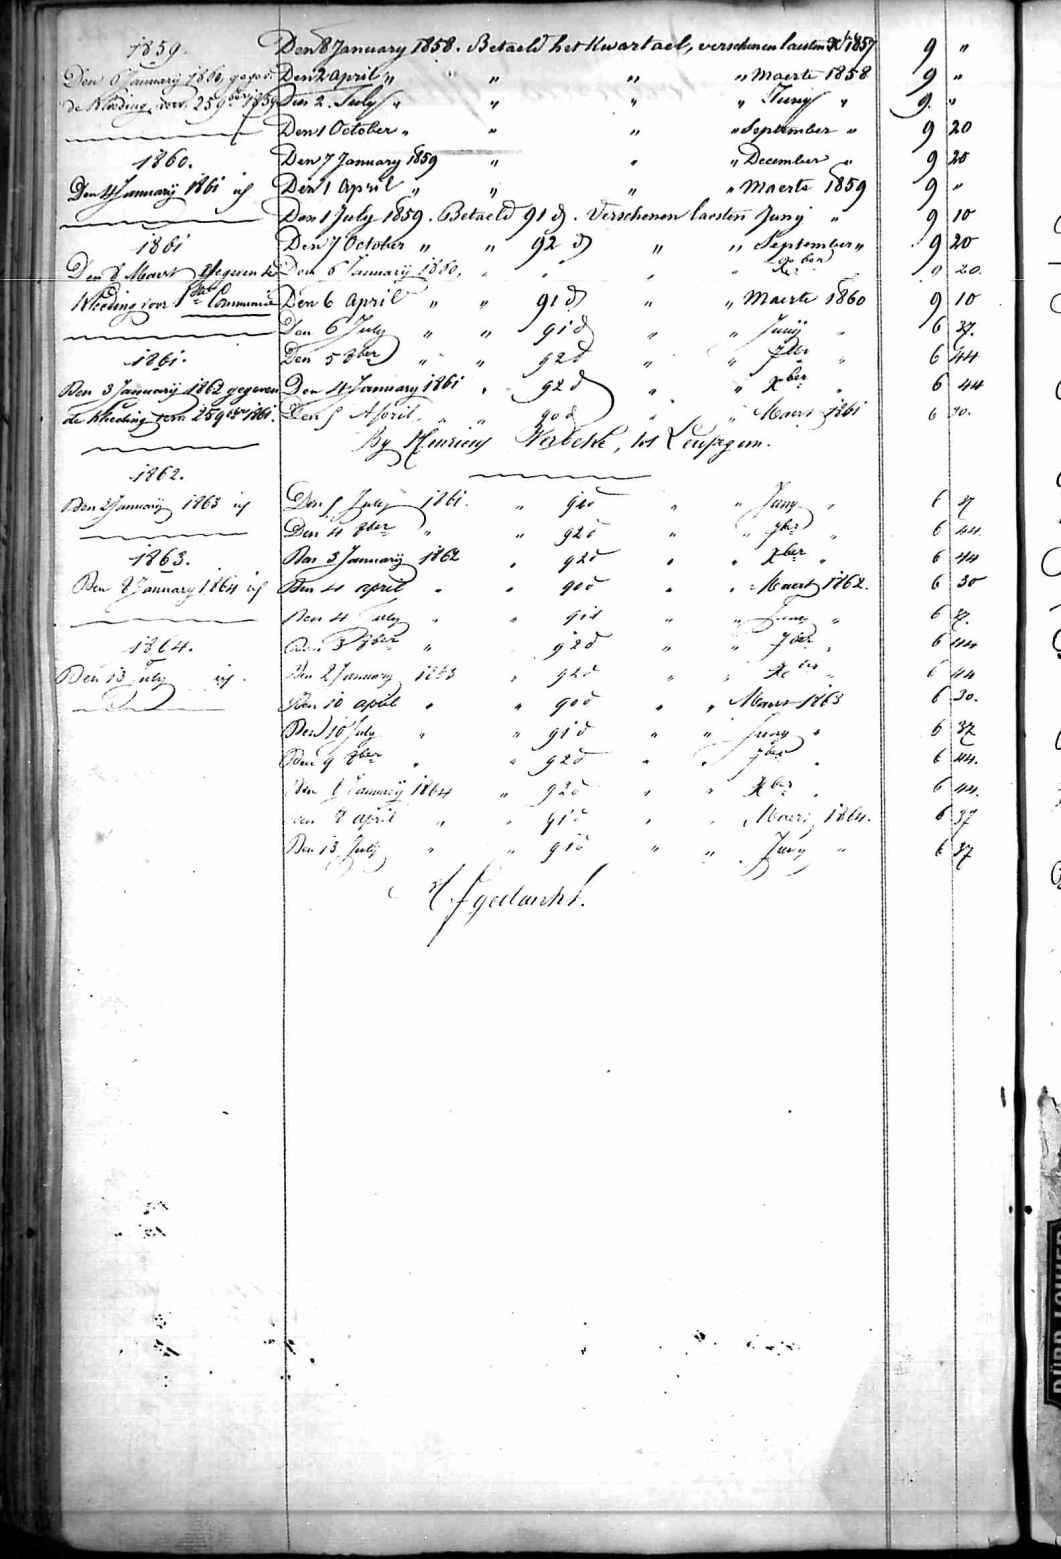 1859.
Den 6 January 1860, gegev.
de Kleeding voor 25 9ber 1859
1860.
Den 4 January 1861 id
1861
Den 8 Maert gegeven de
Kleeding voor 1ste Communie
1861.
Den 3 January 1862 gegeven
de Kleeding van 25 9ber 1861.
1862.
Den 2 January 1863 id
1863.
Den 8 January 1864 id
1864.
Den 13 July id.
Den 8 January 1858. Betaeld het Kwartael, verschenen laesten Xber 1857 9 "
Den 2 April " " " " Maerte 1858 9 "
Den 2. July " " " " Juny " 9. "
Den 1 October " " " " September " 9 20
Den 7 January 1859 " " " December " 9 20
Den 1 April " " " " Maerte 1859 9 "
Den 1 July 1859. Betaeld 91 d. Verschenen laesten Juny " 9 10
Den 7 October " " 92 d " " September " 9 20
Den 6 January 1860, " " " " Xber " 9 20.
Den 6 April " " 91 d " " Maerte 1860 9 10
Den 6 July " " 91 d " " Juny " 6 37.
Den 5 8ber " " 92 d " " 7ber " 6 44
Den 4 January 1861 " 92 d " " Xber " 6 44
Den 5 April " " 90 d " " Maert 1861 6 30.
By Henricus Verbeke, tot Leupegem.
Den 5 July 1861. " 91 d " " Juny " 6 37
Den 4 8ber " " 92 d " " 7ber " 6 44.
Den 3 January 1862 " 92 d " " Xber " 6 44
Den 4 april " " 90 d " " Maert 1862. 6 30
Den 4 July " " 91 d " " Juny " 6 37.
Den 3 8ber " " 92 d " " 7ber " 6 44
Den 2 January 1863 " 92 d " " Xber " 6 44
Den 10 april " " 90 d " " Maert 1863 6 30.
Den 10 July " " 91 d " " Juny " 6 37
Den 9 8ber " " 92 d " " 7ber " 6 44.
Den 8 January 1864 " 92 d " " Xber " 6 44.
Den 8 april " " 91 d " " Maert 1864. 6 37
Den 13 July " " 91 d " " Juny " 6 37
Afgedankt.